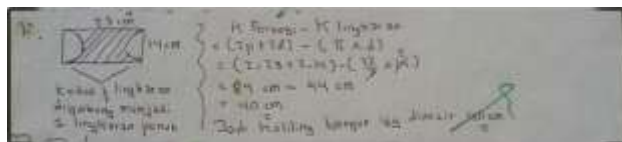 28 cm
14 cm
Kedua ½ lingkaran
digabung menjadi
1 lingkaran penuh
K Persegi - K lingkaran
= (2p + 2l) - (π × d)
= (2.28 + 2.14) - (22/7 × 14)
= 84 cm - 44 cm
= 40 cm
Jadi keliling bangun yg diarsir